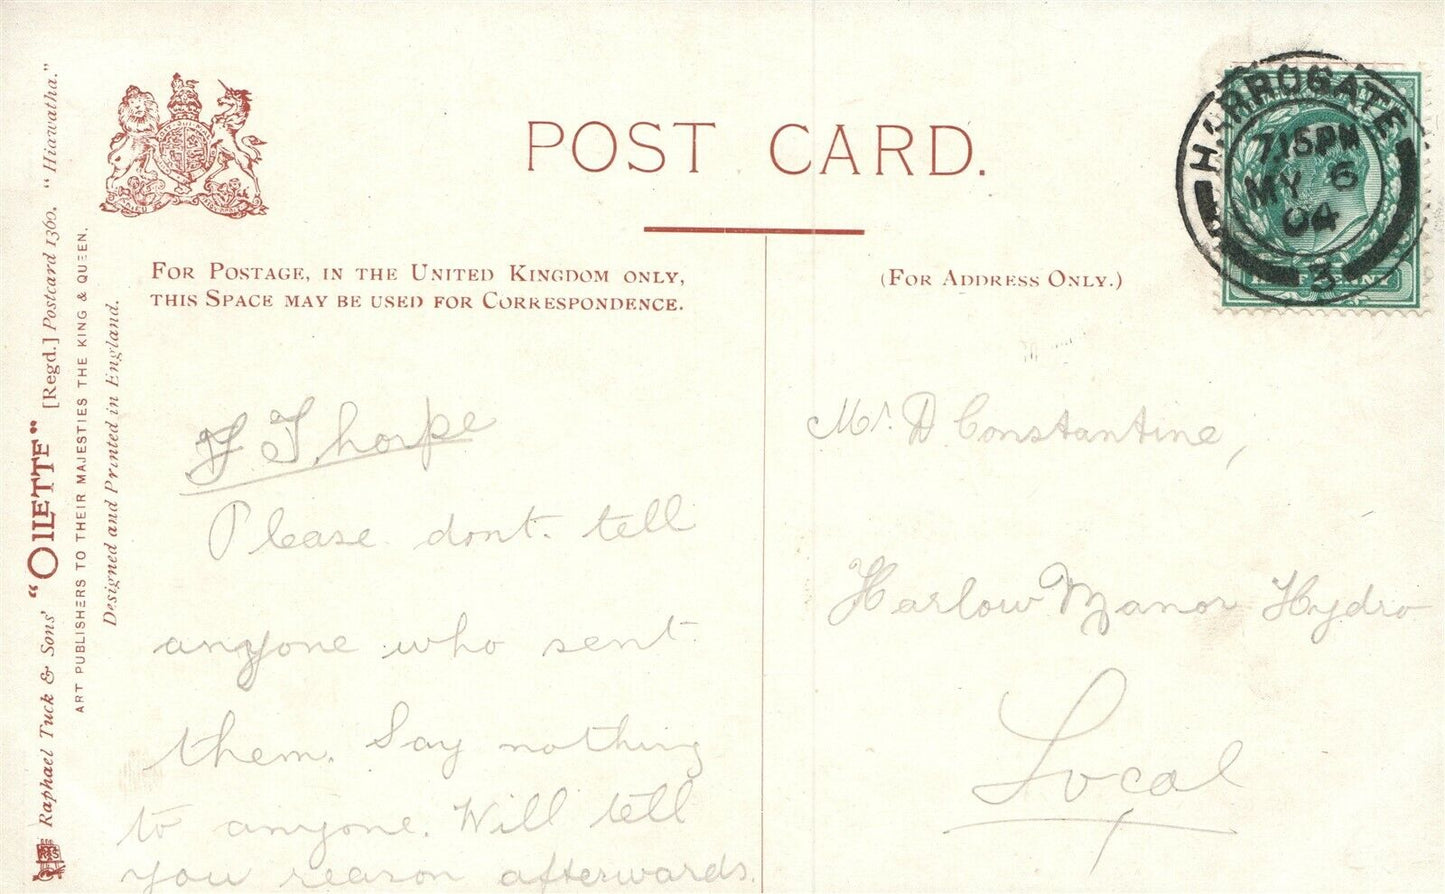 POST CARD.
FOR POSTAGE, IN THE UNITED KINGDOM ONLY,
THIS SPACE MAY BE USED FOR CORRESPONDENCE.
(FOR ADDRESS ONLY.)
HARROGATE
7.15PM
MY 6
04
3
Raphael Tuck & Sons' "OILETTE" [Regd.] Postcard 1360. "Hiawatha."
ART PUBLISHERS TO THEIR MAJESTIES THE KING & QUEEN.
Designed and Printed in England.
F. Thorpe
Please dont. tell
anyone who sent.
them. Say nothing
to anyone. Will tell
you reason afterwards.
Mr. D Constantine,
Harlow Manor Hydro
Local